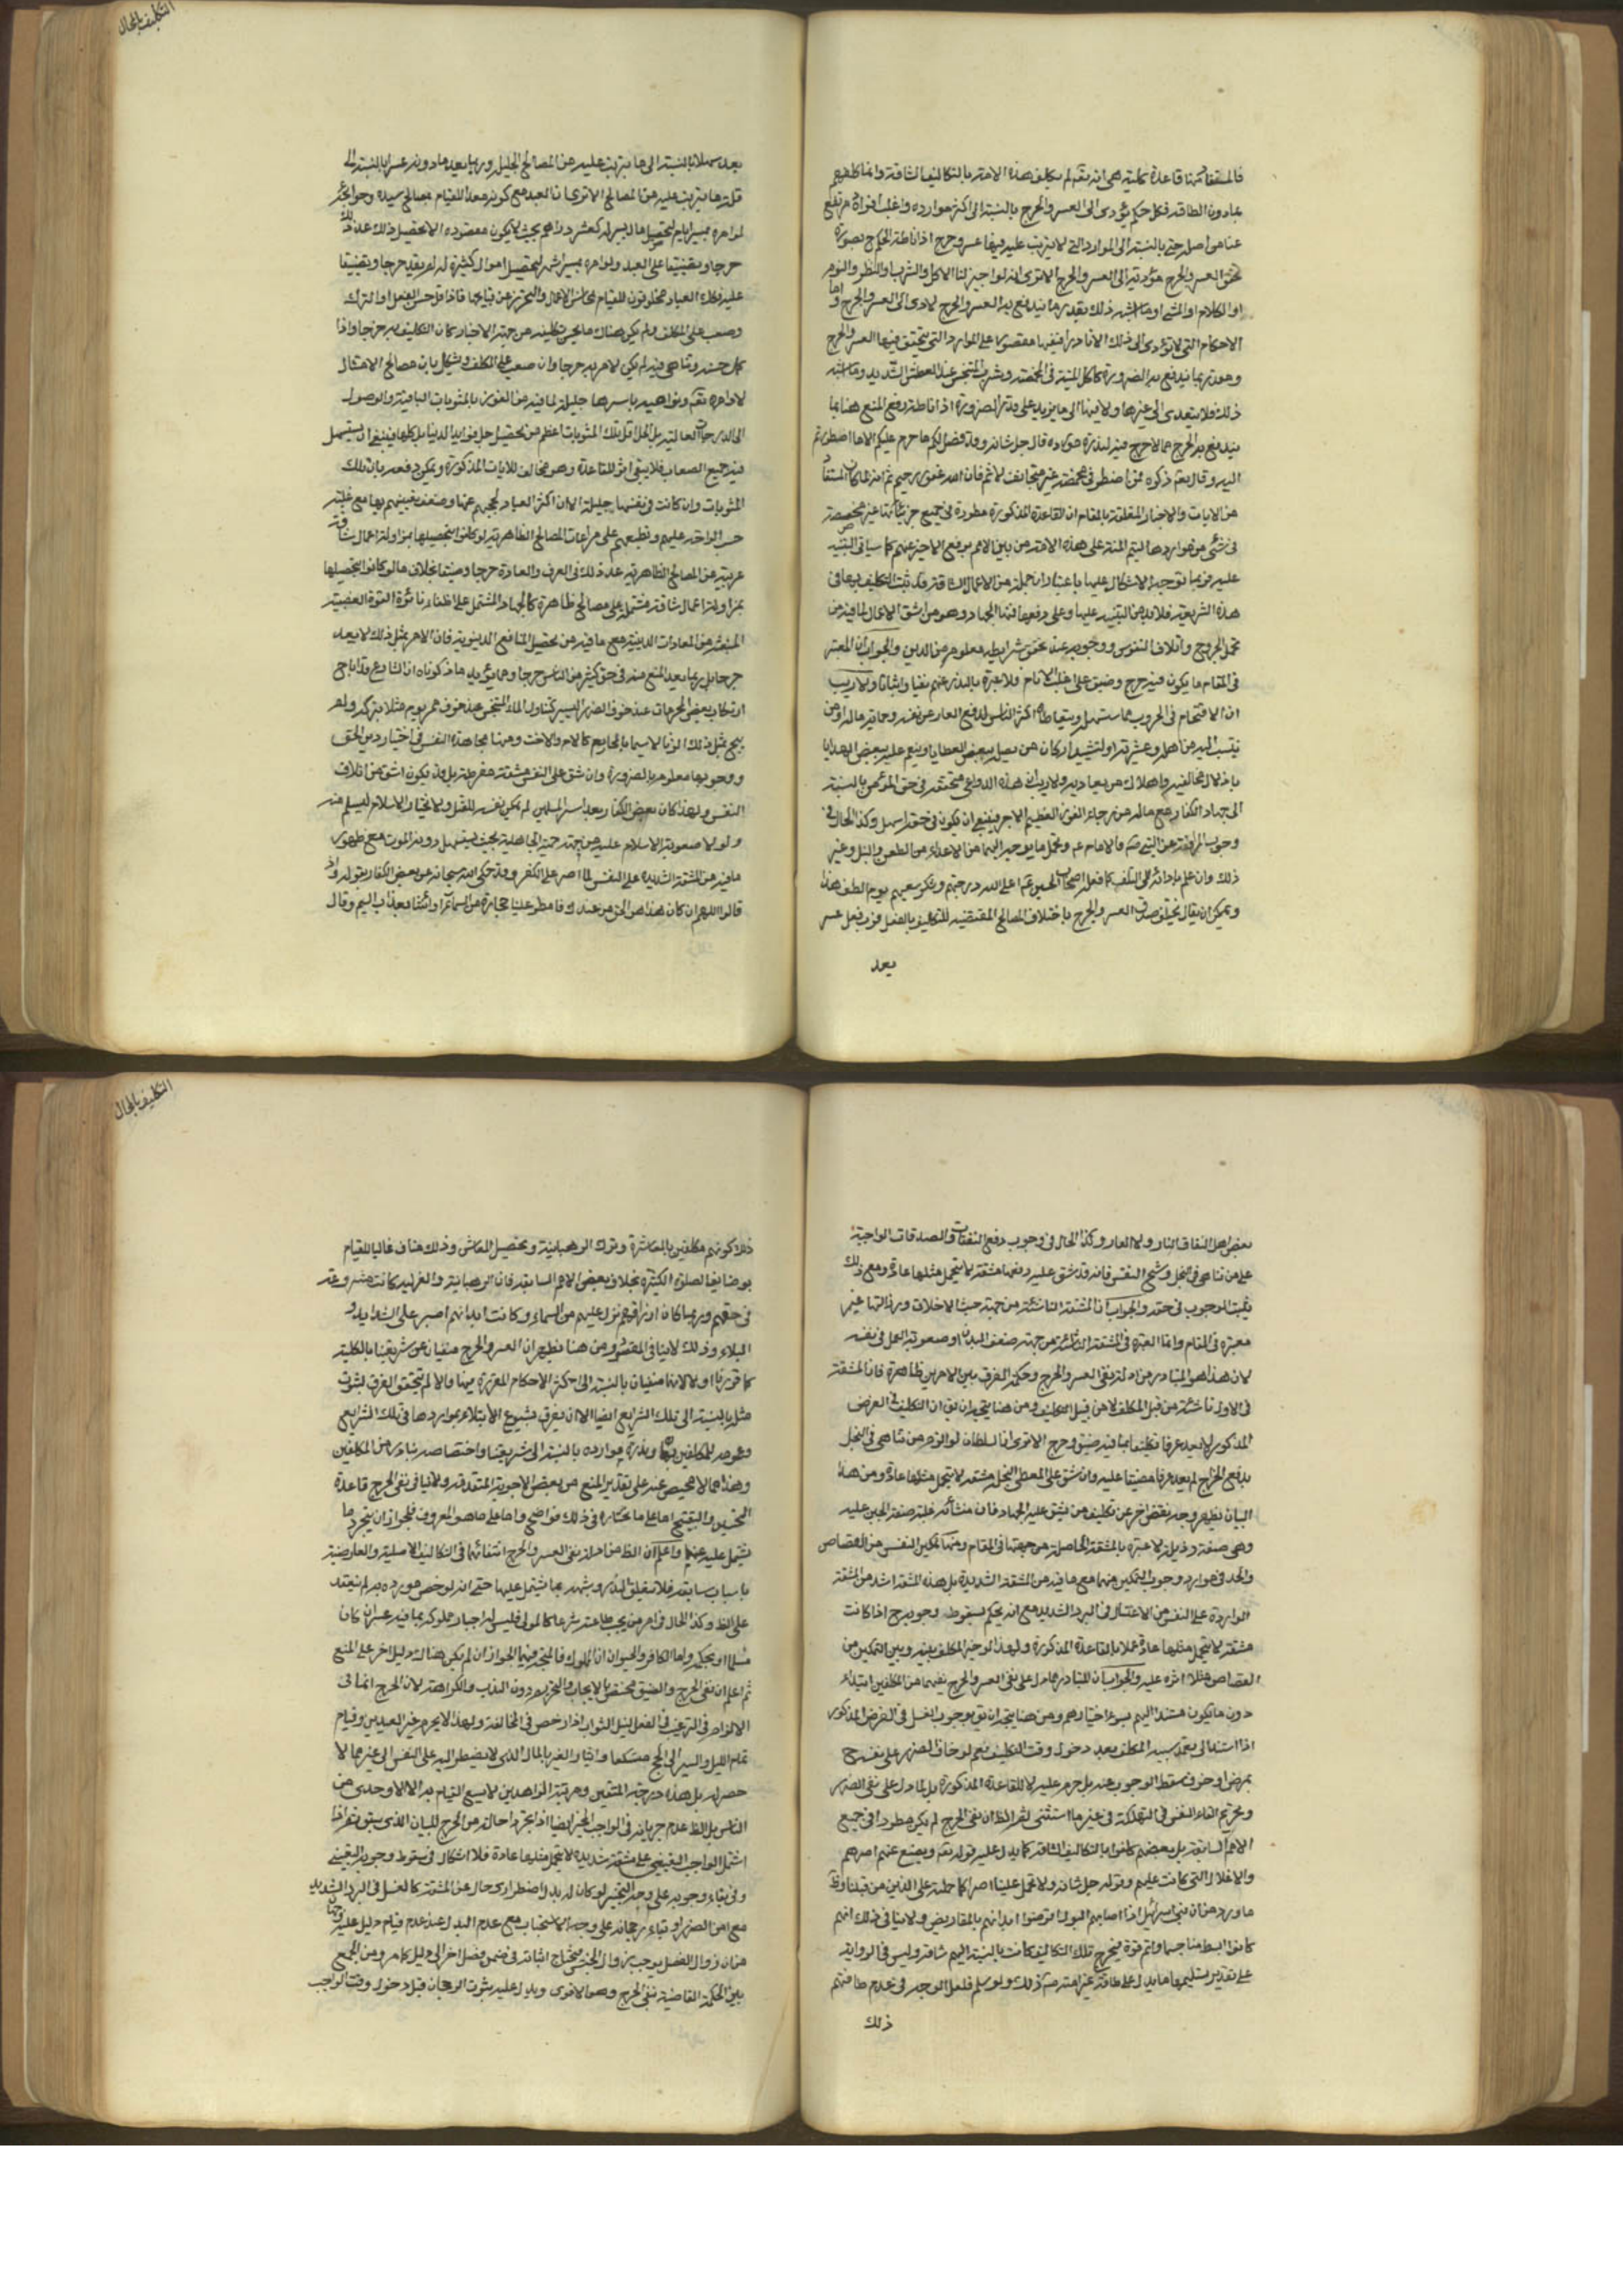 فالمستفاد منها قاعدة كلية هي انه تعه لم يكلف هذه الامة بالتكاليف الشاقة وانما كلفهم
بمادون الطاقة فكل حكم يؤدى الى العسر والحرج بالنسبة الى اكثر موارده واغلب افراده مرتفع
عنا من اصله حتى بالنسبة الى الموارد التى لا يترتب عليه فيها عسر وحرج اذ اناطة الحكم ح بصورة
تحقق العسر والحرج مؤدية الى العسر والحرج الا ترى انه لو اجيز لنا الاكل والشرب والنظر والنوم
او الكلام او المشي او ما اشبه ذلك بقدر ما يندفع به العسر والحرج لادى الى العسر والحرج واما
الاحكام التى لا تؤدى الى ذلك الا نادرا فنفيها مقصور على الموارد التى يتحقق فيها العسر والحرج
وهو قدر ما يندفع به الضرورة كاكل الميتة فى المخمصة وشرب المتنجس عند العطش الشديد وما اشبه
ذلك فلا يتعدى الى غيرها ولا فيها الى ما يزيد على قدر الضرورة اذ اناطة رفع المنع هنا بما
يندفع به الحرج مما لا حرج فيه لندرة مورده قال جل شانه وقد فصل لكم ما حرم عليكم الا ما اضطررتم
اليه وقال تعه ذكره فمن اضطر فى مخمصة غير متجانف لاثم فان الله غفور رحيم ثم انه لما كان المستفاد
من الايات والاخبار المتعلقة بالمقام ان القاعدة المذكورة مطردة فى جميع جزئياتها غير مخصصة
فى شئ من مواردها ليتم المنة على هذه الامة من بين الامم برفع الاصر عنهم كما سياتى التنبيه
عليه فربما توجه الاشكال عليها باعتبار ان جملة من الاعمال الشاقة قد ثبت التكليف بها فى
هذه الشريعة فلا بد من التنبيه عليها وعلى دفعها فمنها الجهاد وهو من اشق الاعمال لما فيه من
تحمل الجروح واتلاف النفوس ووجوبه عند تحقق شرايطه معلوم من الدين والجواب ان المعتبر
فى المقام ما يكون فيه حرج وضيق على اغلب الانام فلا عبرة بالنادر منهم نفيا واثباتا ولا ريب
ان الاقتحام فى الحروب مما يستسهل ويتعاطاه اكثر الناس لدفع العار عن نفسه وحماية ماله او من
ينتسب اليه من اهله وعشيرته او لتشييد اركان من يصله ببعض العطايا وينعم عليه ببعض الهدايا
باذلال مخالفيه واهلاك من يعاديه ولا ريب ان هذه الدواعى متحققة فى حق المؤمن بالنسبة
الى جهاد الكفار مع ماله من رجاء الفوز العظيم الاجر فينبغى ان يكون فى حقه اسهل وكذا الحال فى
وجوب المرافعة عن النبى صم والامام عم وتحمل ما يوجه اليهما من الاعداء من الطعن والنبل وغير
ذلك وان علم بادائه الى التلف كما فعله اصحاب الحسين عم اعلى الله درجتهم وشكر سعيهم يوم الطف هذا
ويمكن ان يقال يختلف صدق العسر والحرج باختلاف المصالح المقتضية للتكليف بالفعل فرب فعل عسر
يعد
التكليف بالمحال
يعد سهلا بالنسبة الى ما يترتب عليه من المصالح الجليلة وربما يعد ما دونه عسرا بالنسبة الى
قلة ما يترتب عليه من المصالح الا ترى ان العبد مع كونه معدا للقيام بمصالح سيده وحوائجه
لو امره بمسير ايام لتحصيل مال يسير له كعشر دراهم بحيث لا يكون مقصوده الا تحصيل ذلك عد ذلك
حرجا وتضييقا على العبد ولو امره بمسير اشهر لتحصيل اموال كثيرة له لم يعد حرجا وتضييقا
عليه فكذا العباد مخلوقون للقيام بمحاسن الاعمال والتحرز عن قبايحها فاذا قل حسن الفعل او الترك
وصعب على المكلف ولم يكن هناك ما يحسن تكليفه من جهة الاختبار كان التكليف به حرجا واذا
كمل حسنه وتناهى فيه لم يكن الامر به حرجا وان صعب على المكلف ويشكل بان مصالح الامتثال
لاوامره تعه ونواهيه باسرها جليلة لما فيه من الفوز بالمثوبات الباقية والوصول
الى الدرجات العالية بل اقل تلك المثوبات اعظم من تحصيل جل فوايد الدنيا بل كلها فينبغى ان يستسهل
فيه جميع الصعاب فلا يبقى اثر للقاعدة وهو مخالف للايات المذكورة ويمكن دفعه بان تلك
المثوبات وان كانت فى نفسها جليلة الا ان اكثر العباد لحجبهم عنها وضعف يقينهم بها مع غلبة
حب الراحة عليهم وتطبعهم على مراعات المصالح الظاهرية لو كلفوا لتحصيلها بمزاولة اعمال شاقة
عرية عن المصالح الظاهرية عد ذلك فى العرف والعادة حرجا وضيقا بخلاف ما لو كلفوا لتحصيلها
بمزاولة اعمال شاقة مشتملة على مصالح ظاهرة كالجهاد المشتمل على اطفاء نائرة القوة الغضبية
المنبعثة من المعادات الدينية مع ما فيه من تحصيل المنافع الدنيوية فان الامر بمثل ذلك لا يعد
حرجا بل ربما يعد المنع منه فى حق كثير من الناس حرجا ومما يؤيد ما ذكرناه ان الشارع قد اباح
ارتكاب بعض المحرمات عند خوف الضرر اليسير كتناول الماء المتنجس عند خوف مرض يوم مثلا بتركه ولم
يبح بمثل ذلك الزنا لا سيما بالمحارم كالام والاخت ومنها مجاهدة النفس فى اختيار دين الحق
ووجوبها معلوم بالضرورة وان شق على النفس مشقة مفرطة بل قد يكون اشق من اتلاف
النفس ولهذا كان بعض الكفار بعد اسر المسلمين له يمكن نفسه للقتل ولا يختار الاسلام ليسلم منه
ولولا صعوبة الاسلام عليه من جهة حمية الجاهلية بحيث يستسهل دونه الموت مع ظهور
ما فيه من المشقة الشديدة على النفس لما اصر على الكفر وقد حكى الله سبحانه عن بعض الكفار بقوله واذ
قالوا اللهم ان كان هذا هو الحق من عندك فامطر علينا حجارة من السماء او ائتنا بعذاب اليم وقال
بعض اهل النفاق النار ولا العار وكذا الحال فى وجوب دفع النفقات والصدقات الواجبة
على من تناهى فى البخل وشح النفس فانه قد شق عليه دفعها مشقة لا يتحمل مثلها عادة ومع ذلك
يثبت الوجوب فى حقه والجواب ان المشقة الناشئة من جهة خبث الاخلاق ورذالتها غير
معتبرة فى المقام وانما العبرة فى المشقة الناشئة من جهة ضعف البدن او صعوبة العمل فى نفسه
لان هذا هو المتبادر من ادلة نفى العسر والحرج وحكمة الفرق بين الامرين ظاهرة فان المشقة
فى الاول ناشئة من قبل المكلف لا من قبل التكليف ومن هنا يتجه ان يق ان التكليف فى الفرض
المذكور لا يعد عرفا تكليفا بما فيه ضيق وحرج الا ترى ان السلطان لو الزم من تناهى فى البخل
بدفع الخراج لم يعد عرفا مضيقا عليه وان شق على المعطى البخيل مشقة لا يتحمل مثلها عادة ومن هذا
البيان يظهر وجه نقض اخر عن تكليف من يشق عليه الجهاد فان منشأه غلبة صفة الجبن عليه
وهى صفة رذيلة لا عبرة بالمشقة الحاصلة من جهتها فى المقام ومنها تمكين النفس من القصاص
والحد فى موارد وجوب التمكين منهما مع ما فيه من المشقة الشديدة بل هذه المشقة اشد من المشقة
الواردة على النفس من الاغتسال فى البرد الشديد مع انه يحكم بسقوط وجوبه ح اذا كانت
مشقة لا يتحمل مثلها عادة عملا بالقاعدة المذكورة ولهذا لو خير المكلف بينه وبين التمكين من
القصاص مثلا اثره عليه والجواب ان المتبادر مما دل على نفى العسر والحرج نفيهما من المكلفين ابتداء
دون ما يكون مستندا اليهم بسوء اختيارهم ومن هنا يتجه ان يق بوجوب الغسل فى الفرض المذكور
اذا استند الى تعمد سببه المكلف بعد دخول وقت التكليف نعم لو خاف الضرر على نفسه ح
بمرض او خوف سقط الوجوب عنه بل حرم عليه لا للقاعدة المذكورة بل لما دل على نفى الضرر
وتحريم القاء النفس فى التهلكة فى غير ما استثنى ثم الظ ان نفى الحرج لم يكن مطردا فى جميع
الامم السابقة بل بعضهم كلفوا بالتكاليف الشاقة كما يدل عليه قوله تعه ويضع عنهم اصرهم
والاغلال التى كانت عليهم وقوله جل شانه ولا تحمل علينا اصرا كما حملته على الذين من قبلنا وظ
ما ورد من ان بنى اسرائيل اذا اصابهم البول قرضوا ابدانهم بالمقاريض ولا ينافى ذلك انهم
كانوا ابسط منا جسما واتم قوة فيخرج تلك التكاليف كانت بالنسبة اليهم شاقة وليس فى الرواية
على تقدير تسليمها ما يدل على طاقة غير امته صم ذلك ولو سلم فلعل الوجه فى عدم طاقتهم
ذلك
التكليف بالمحال
ذلك كونهم مكلفين بالمعاشرة وترك الرهبانية وتحصيل المعاش وذلك مناف غالبا للقيام
بوضايف الصلوة الكثيرة بخلاف بعض الامم السابقة فان الرهبانية والعزلة كانت مشروعة
فى حقهم وربما كان ارزاقهم نزل عليهم من السماء وكانت ابدانهم اصبر على الشدايد و
البلاء وذلك لا ينافى المقصود ومن هنا يظهر ان العسر والحرج منفيان عن شريعتنا بالكلية
كما قررنا اولا لا انهما منفيان بالنسبة الى اكثر الاحكام المقررة فيها والا لم يتحقق الفرق لثبوت
مثله بالنسبة الى تلك الشرايع ايضا الا ان يفرق بشيوع الابتلاء بموارده فى تلك الشرايع
وعمومه للمكلفين بها وندرة موارده بالنسبة الى شريعتنا واختصاصه بنادر من المكلفين
وهذا مما لا محيص عنه على تقدير المنع من بعض الاجوبة المتقدمة ولا ينافى نفى الحرج قاعدة
التحسين والتقبيح اما على ما نختاره فى ذلك فواضح واما على ما هو المعروف فلجواز ان ينجبر ما
يشتمل عليه عنهم واعلم ان الظ من ادلة نفى العسر والحرج انتفائهما فى التكاليف الاصلية والعارضية
باسباب سابقة فلا يتعلق النذر وشبهه بما يشتمل عليها حتى انه لو خص مورده به لم ينعقد
على الظ وكذا الحال فى امر من يجب طاعته شرعا كالمولى فليس له اجبار مملوكه بما فيه عسر ان كان
مسلما او بحكمه واما الكافر والحيوان المملوك فالمتجه فيهما الجواز ان لم يكن هناك دليل اخر على المنع
ثم اعلم ان نفى الحرج والضيق مختص بالايجاب والتحريم دون الندب والكراهة لان الحرج انما فى
الالزام لا فى الترغيب فى الفعل لنيل الثواب اذا رخص فى المخالفة ولهذا لا يحرم غير العيدين وقيام
تمام الليل والسير الى الحج متسكعا وايثار الغير بالمال الذى لا يضطر اليه على النفس الى غير مما لا
حصر له بل هذه درجة المتقين ومرتبة الزاهدين لا يسع القيام به الا الاوحدى من
الناس بل الظ عدم جريانه فى الواجب التخييرى ايضا اذا تجرد احاله من الحرج للبيان الذى سبق نعم اذا
اشتمل الواجب التعيينى على مشقة شديدة لا يتحمل مثلها عادة فلا اشكال فى سقوط وجوبه التعيينى
وفى بقاء وجوبه على وجه التخيير لو كان له بدل اضطرارى حال عن المشقة كالغسل فى البرد الشديد
مع امن الضرر او بقاء رجحانه على وجه الاستحباب مع عدم البدل عند عدم قيام دليل عليه وجهان
من ان زوال الفصل يوجب زوال الجنس فيحتاج اثباته فى ضمن فصل اخر الى دليل كما مر ومن الجمع
بين الحكمة القاضية بنفى الحرج وهو الاقوى ويدل عليه ثبوت الرجحان قبل دخول وقت الواجب